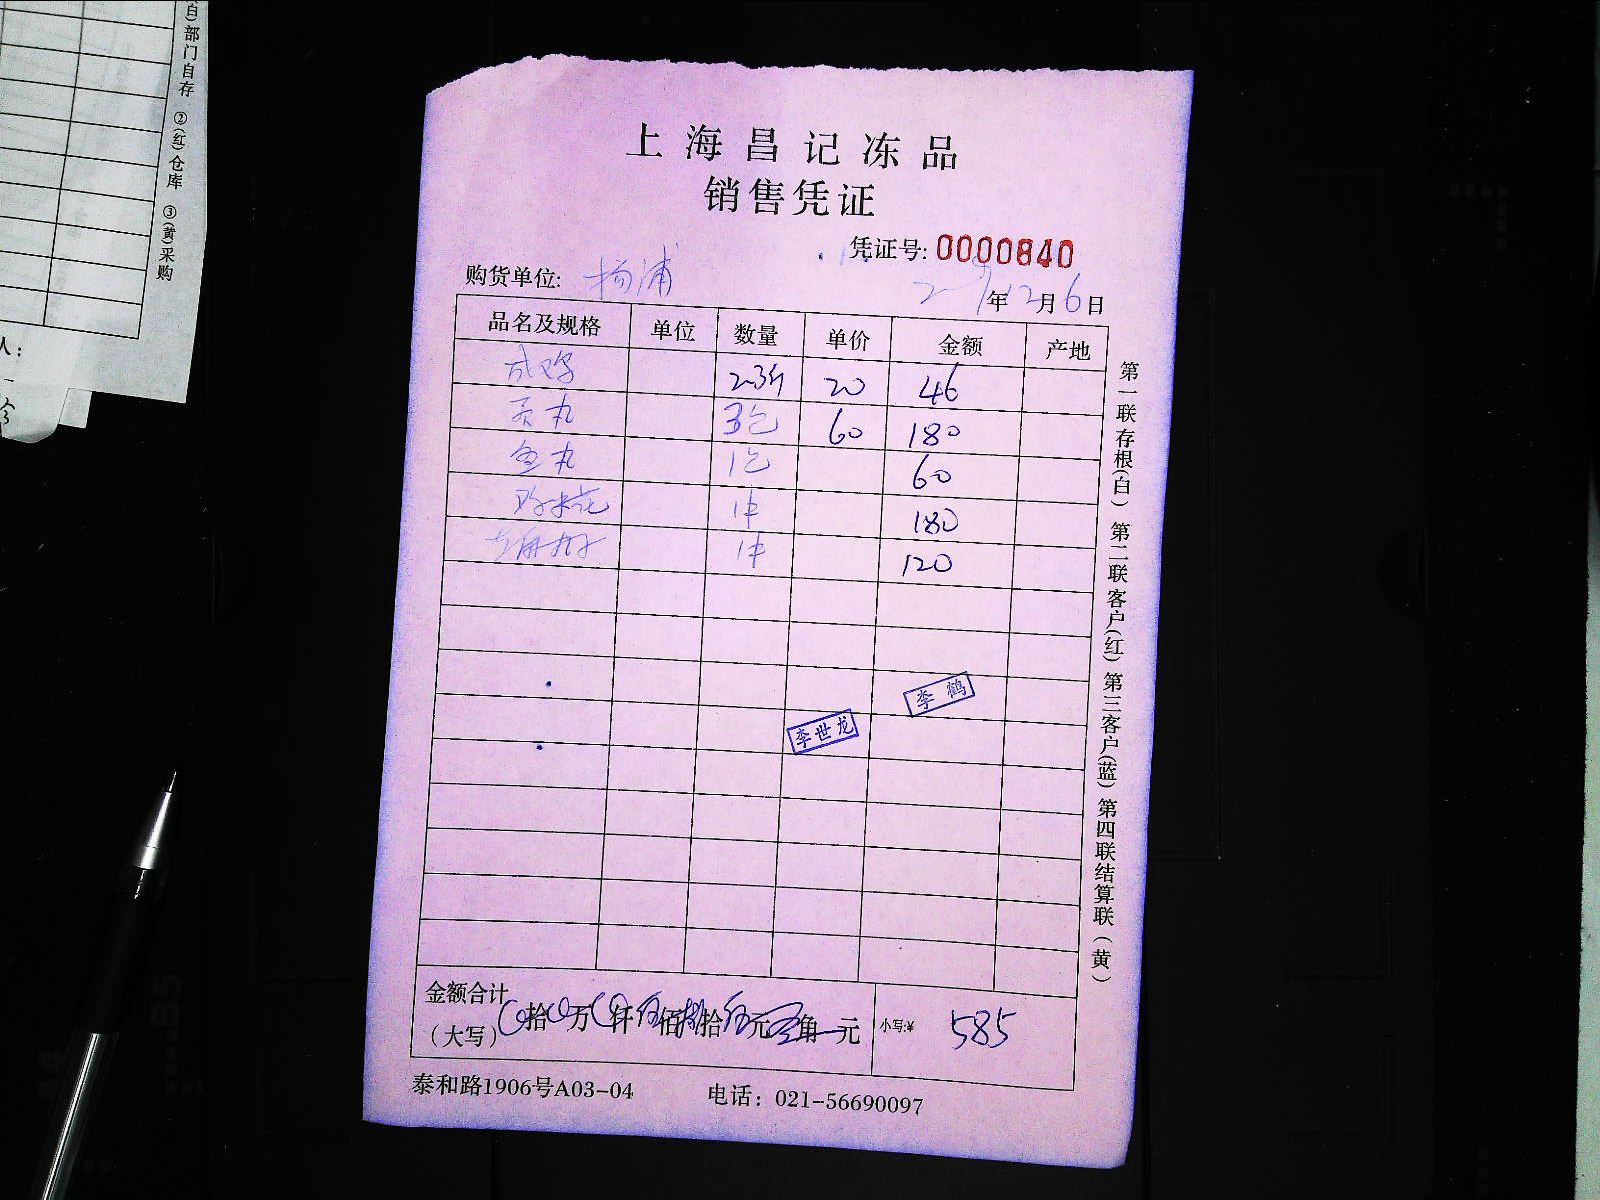 白）部门自存 ②（红）仓库 ③（黄）采购
人：
上海昌记冻品
销售凭证
凭证号：0000840
购货单位：杨浦
年12月6日
品名及规格 单位 数量 单价 金额 产地
2.3斤 20 46
贡丸 3包 60 180
鱼丸 1包 60
鸡米花 1件 180
1件 120
李鹤
李世龙
金额合计
（大写） 拾 万 仟伍佰捌拾伍元 角 元 小写:¥ 585
泰和路1906号A03-04 电话：021-56690097
第一联存根（白） 第二联客户（红） 第三客户（蓝） 第四联结算联（黄）